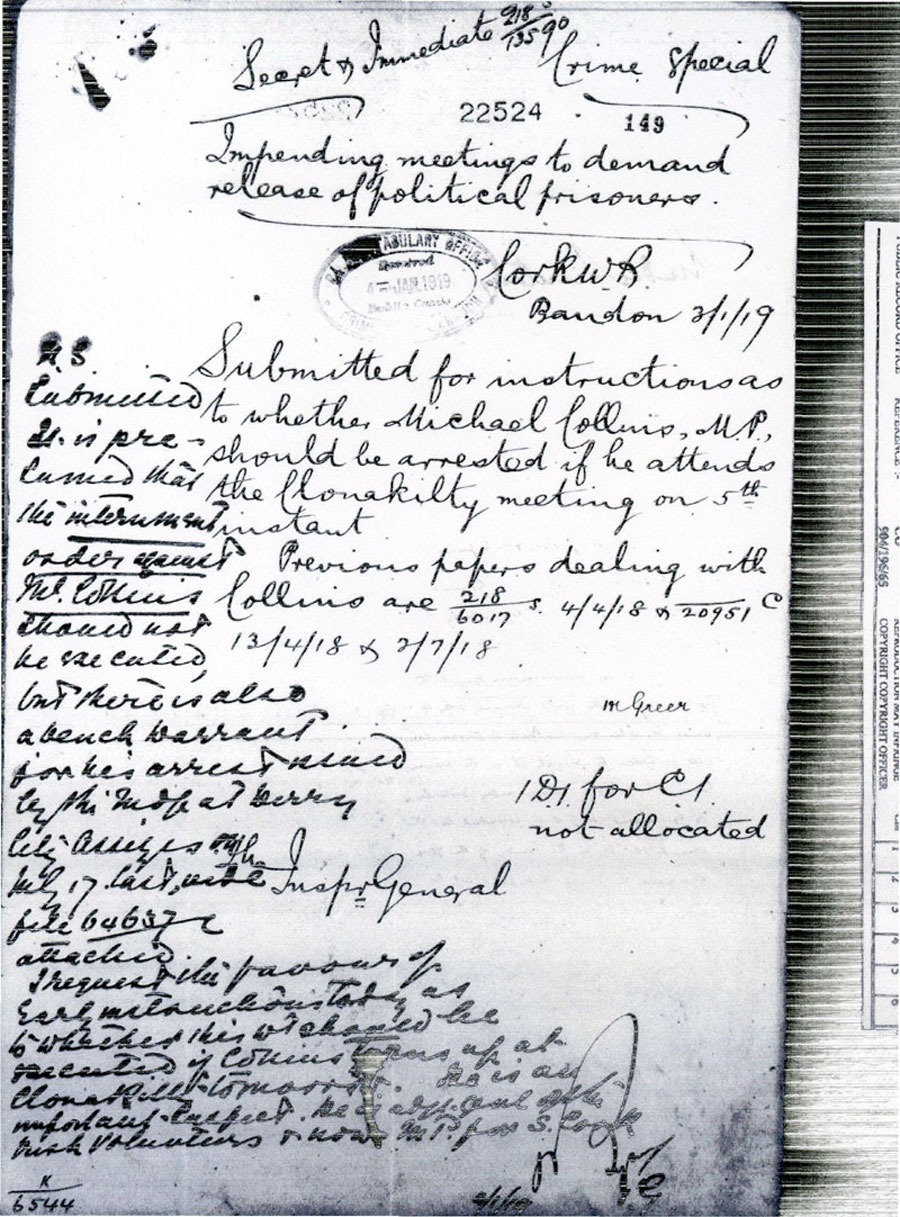 218 S
13590
Secret & Immediate
Crime Special
22524
149
Impending meetings to demand
release of political prisoners.
CONSTABULARY OFFICE
Received
4 JAN. 1919
Dublin Castle
CRIME
Cork W.R.
Bandon 3/1/19
Submitted for instructions as
to whether Michael Collins, M.P.,
should be arrested if he attends
the Clonakilty meeting on 5th
instant
Previous papers dealing with
Collins are 218/6017 S. 4/4/18 & 20951 C
13/4/18 & 2/7/18
1 D1 for C1.
not allocated
Inspr General
U.S
Submitted
It is pre-
sumed that
the internment
order against
Mr. Collins
should not
be executed,
but there is also
a bench warrant
for his arrest issued
by the Judge at Derry
City Assizes
July 17 last, vide
file 64637 C
attached.
I request the favour of
early instructions today as
to whether this wt should be
executed if Collins turns up at
Clonakilty tomorrow. He is an
important suspect. He is adjt genl of the
Irish Volunteers & now MP for S. Cork
4/1/19
K
6544
PUBLIC RECORD OFFICE
REFERENCE :-
CO
904/196/65
COPYRIGHT OFFICER